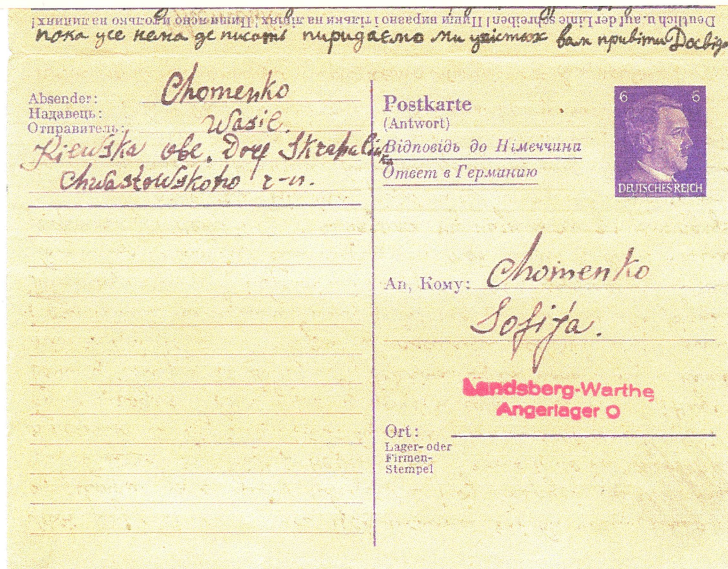 Deutlich u. auf der Linie schreiben! Пиши виразно і тільки на лініях! Пиши ясно и только на линиях
пока усе нема де писать пиридаємо ми усі вам привіти Досвід
Absender:
Надавець:
Отправитель:
Chomenko
Wasil.
Kiewśka obl. Dorf Skrahaliwka
Chwastowśkoho r-n.
Postkarte
(Antwort)
Відповідь до Німеччини
Ответ в Германию
6 6
DEUTSCHES REICH
An, Кому: Chomenko
Sofija.
Landsberg-Warthe
Angerlager O
Ort:
Lager- oder
Firmen-
Stempel